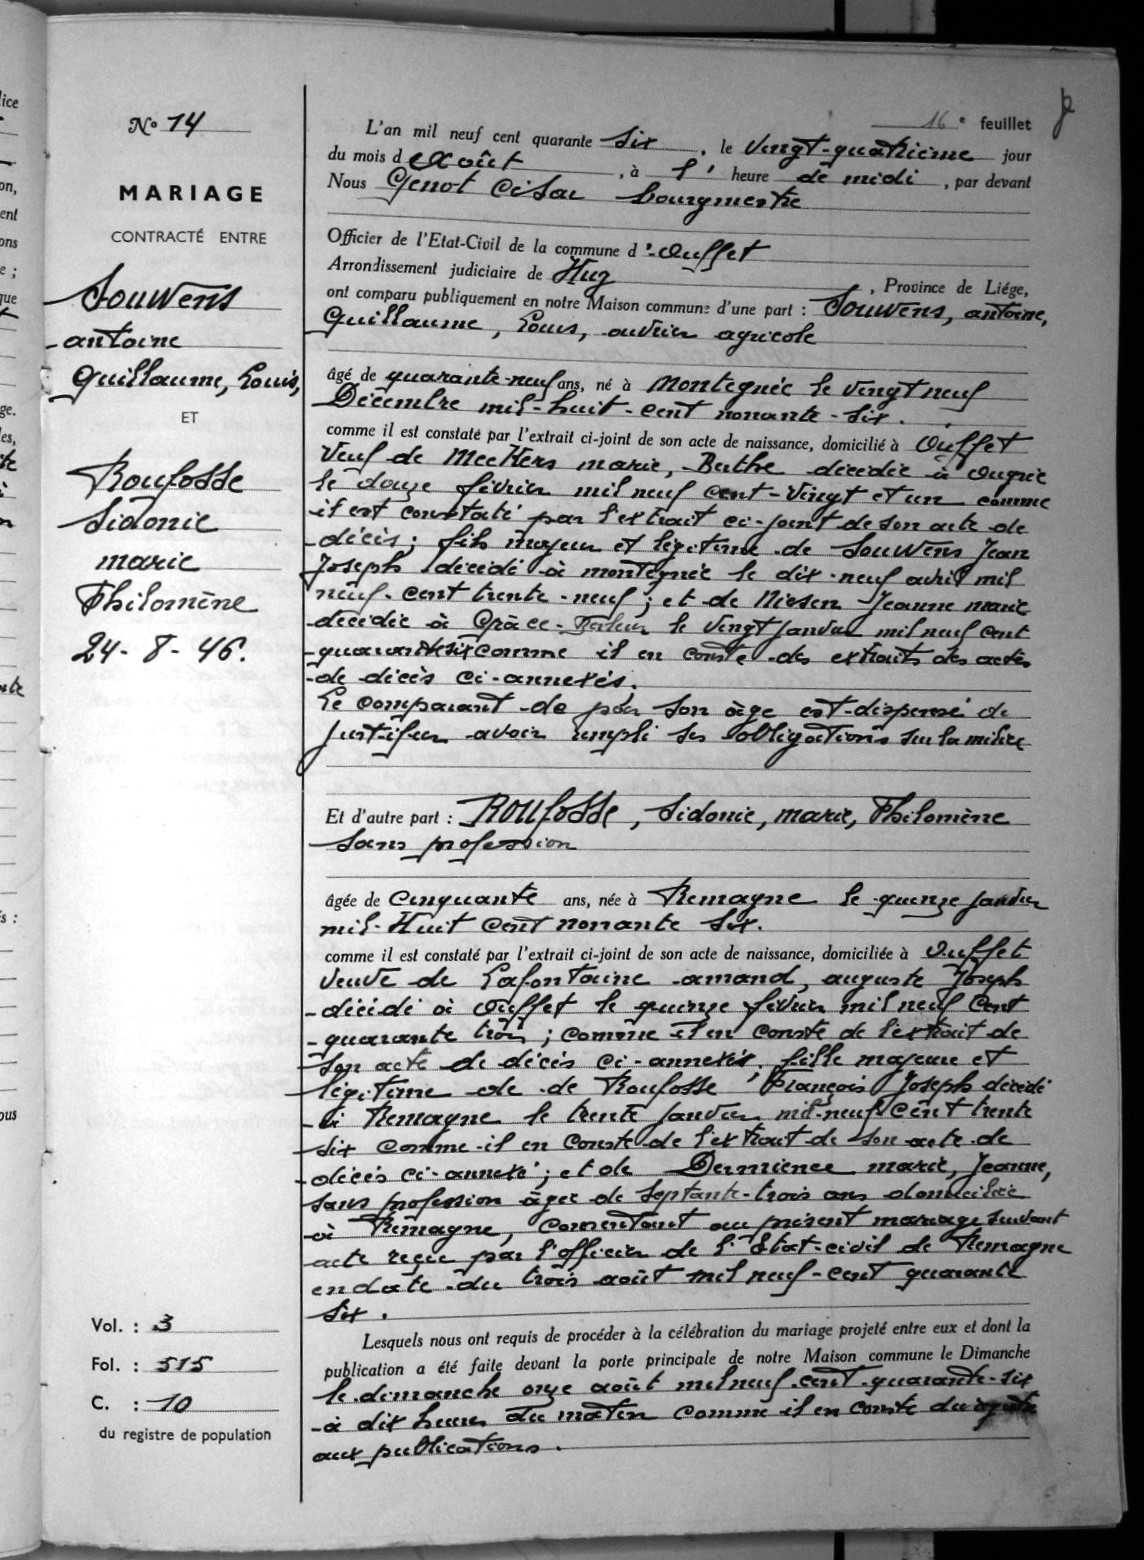 N° 14
MARIAGE
CONTRACTÉ ENTRE
Souwens
antoine
Guillaume, Louis,
ET
Roufosse
Sidonie
marie
Philomène
24-8-46.
Vol. : 3
Fol. : 515
C. : 10
du registre de population
16e feuillet
L'an mil neuf cent quarante six, le vingt-quatrième jour
du mois d'Août, à l' heure de midi, par devant
Nous Genot César bourgmestre
Officier de l'Etat-Civil de la commune d'Ouffet
Arrondissement judiciaire de Huy, Province de Liége,
ont comparu publiquement en notre Maison commune d'une part : Souwens, antoine,
Guillaume, Louis, ouvrier agricole
âgé de quarante-neuf ans, né à Montegnée le vingt neuf
Décembre mil-huit-cent nonante-six.
comme il est constaté par l'extrait ci-joint de son acte de naissance, domicilié à Ouffet
Veuf de Meekers marie, Berthe décédée à Ougrée
le douze février mil neuf cent-vingt et un comme
il est constaté par l'extrait ci-joint de son acte de
décès; fils majeur et légitime de Souwens Jean
Joseph décédé à montegnée le dix-neuf avril mil
neuf-cent trente-neuf; et de Niesen Jeanne marie
décédée à Grâce-Berleur le vingt janvier mil neuf cent
quarante six comme il en conste des extraits des actes
de décès ci-annexés.
Le comparant de par son âge est dispensé de
justifier avoir rempli ses obligations sur la milice
Et d'autre part : Roufosse, Sidonie, marie, Philomène
Sans profession
âgée de cinquante ans, née à Remagne le quinze janvier
mil-Huit cent nonante six.
comme il est constaté par l'extrait ci-joint de son acte de naissance, domiciliée à Ouffet
Veuve de Lafontaine amand, auguste Joseph
décédé à Ouffet le quinze février mil neuf cent
quarante trois; comme il en conste de l'extrait de
son acte de décès ci-annexés. fille majeure et
légitime de de Roufosse François Joseph décédé
à Remagne le trente janvier mil-neuf cent trente
six comme il en conste de l'extrait de son acte de
décès ci-annexé; et de Dermience marie, Jeanne,
sans profession âgée de septante-trois ans domiciliée
à Remagne, consentant au présent mariage suivant
acte reçu par l'officier de l'Etat-civil de Remagne
en date du trois août mil neuf-cent quarante
six.
Lesquels nous ont requis de procéder à la célébration du mariage projeté entre eux et dont la
publication a été faite devant la porte principale de notre Maison commune le Dimanche
le dimanche onze août mil neuf cent quarante-six
à dix heures du matin comme il en conste du
aux publications.